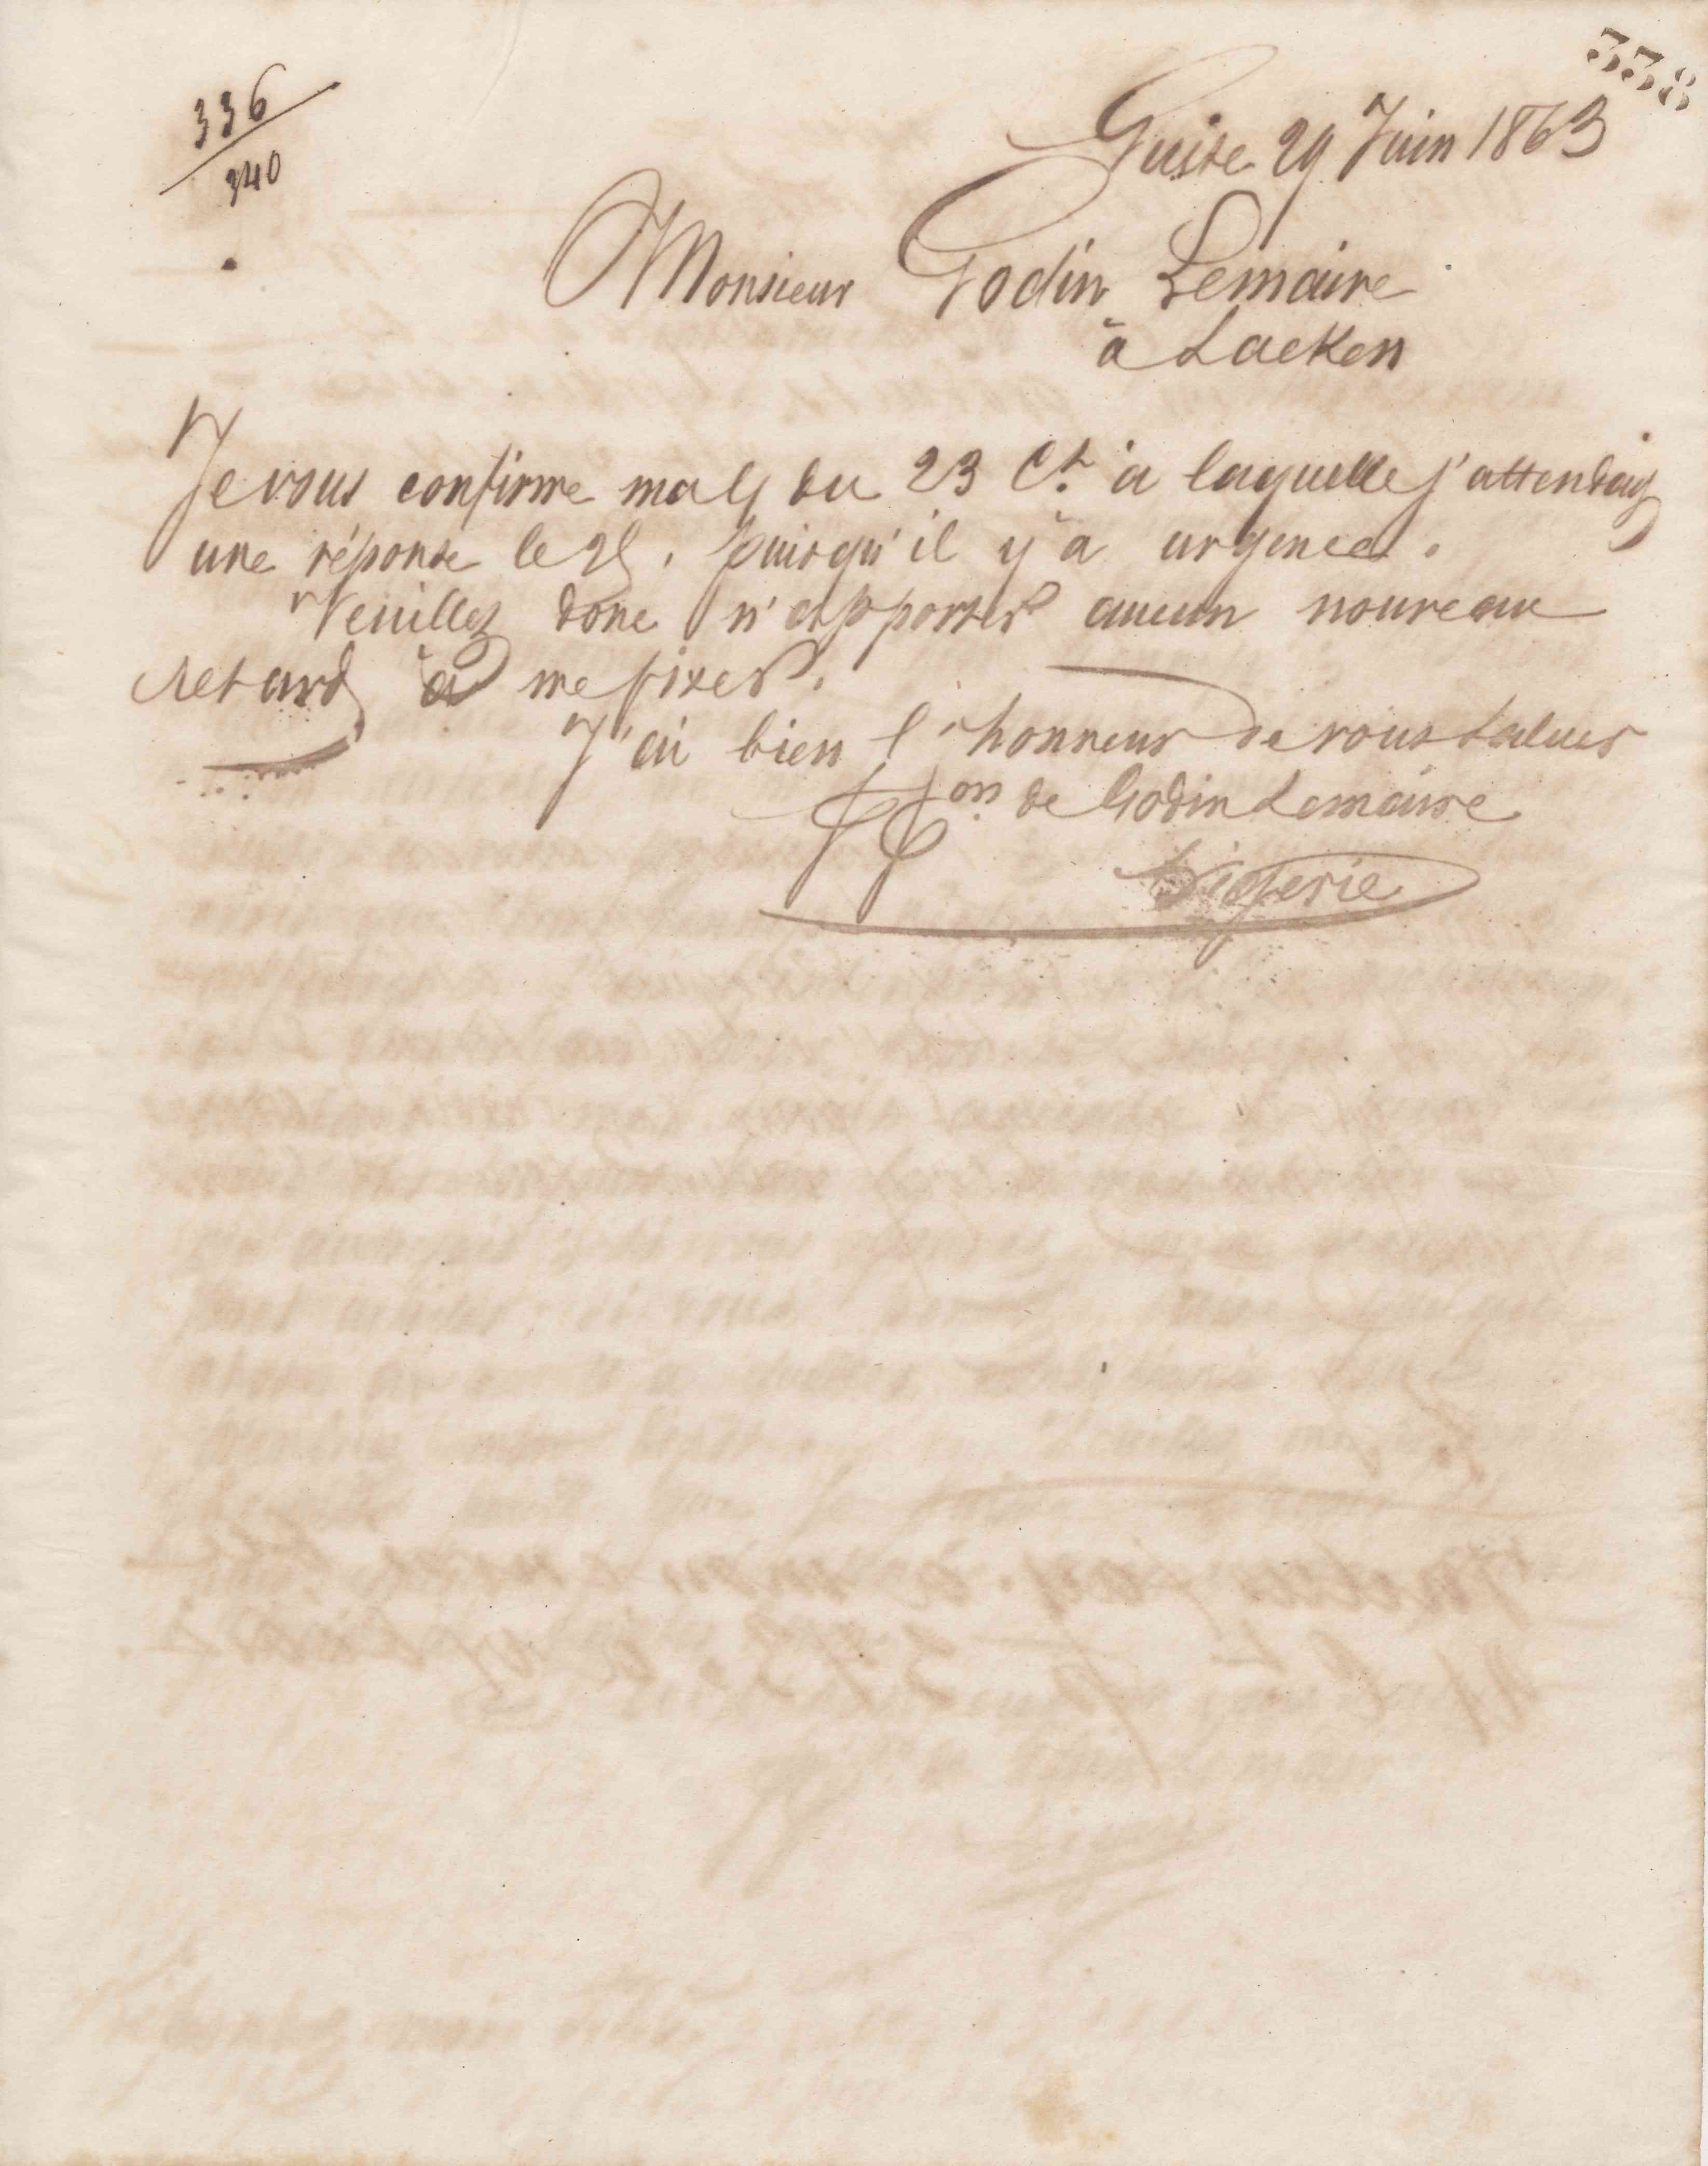 338
336
340
Guise 29 Juin 1863
Monsieur Godin Lemaire
à Laeken
Je vous confirme ma du 23 Ct. à laquelle j'attendais
une réponse le 25, puisqu'il y'a urgence.
Veuillez donc n'apporter aucun nouveau
retard à me fixer.
J'ai bien l'honneur de vous saluer
de Godin Lemaire